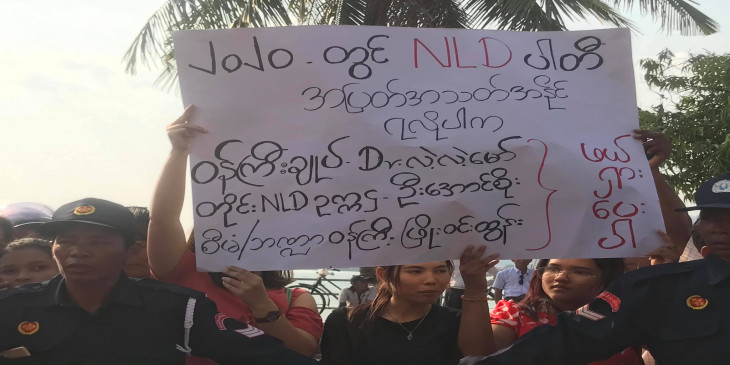 ၂၀၂၀ - တွင် NLD ပါတီ
အပြတ်အသတ်အနိုင်
ရလိုပါက
ဝန်ကြီးချုပ် - Dr. လဲ့လဲ့မော်
တိုင်း NLD ဥက္ကဋ္ဌ - ဦးအောင်စိုး
စီမံ/ဘဏ္ဍာ ဝန်ကြီး ဖြိုးဝင်းထွန်း
ဖယ်
ရှား
ပေး
ပါ